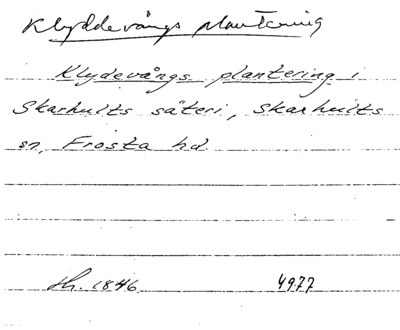 Klyddevångs plantering
Klydevångs plantering i
Skarhults säteri, Skarhults
sn, Frosta hd
1846 4977